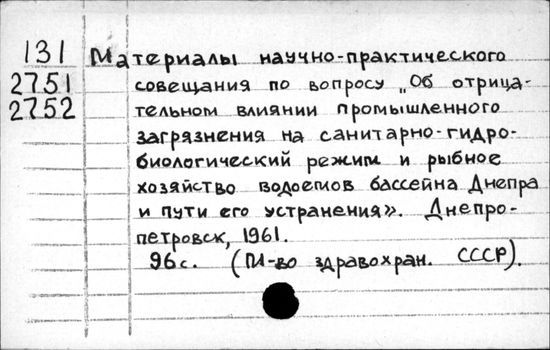 131 Материалы научно-практического
2751 совещания по вопросу „Об отрица-
2752 тельном влиянии промышленного
загрязнения на санитарно-гидро-
биологический режим и рыбное
хозяйство водоемов бассейна Днепра
и пути его устранения». Днепро-
петровск, 1961.
96с. (М-во здравохран. СССР).